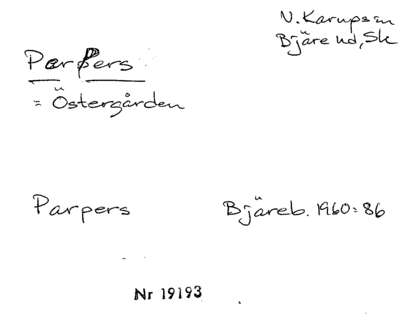 V. Karupsn
Bjäre hd, Sk
Parpers
= Östergården
Parpers Bjäreb. 1960:86
Nr 19193